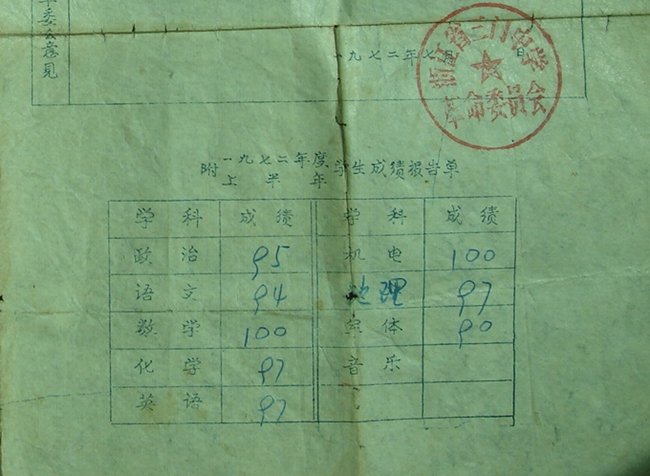 革委会意见
一九七二年七月 日
浙江省三门中学
革命委员会
附一九七二年度上半年学生成绩报告单
学科 成绩 学科 成绩
政治 95 机电 100
语文 94 地理 97
数学 100 体 90
化学 97 音乐
英语 97